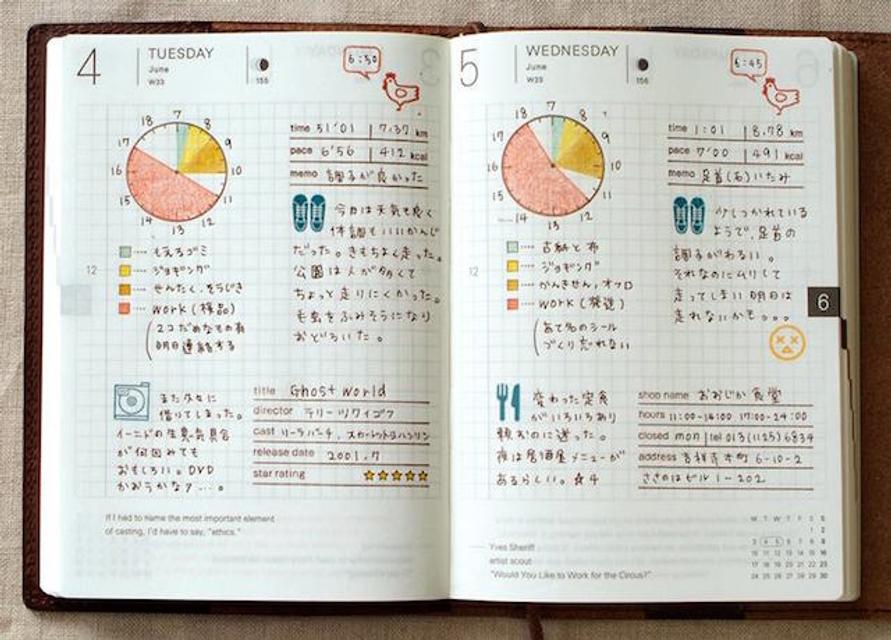 4
TUESDAY
June
W23
155
6:30
18 7 8
17 9
16 10
15 11
14 13 12
time 51'01 7.37 km
pace 6'56 412 kcal
memo 調子が良かった
もえるゴミ
ジョギング
せんたく、そうじき
WORK (検品)
2コだめなもの有
明日連絡する
12
今日は天気も良く
体調もいいかんじ
だった。きもちよく走った。
公園は人が多くて
ちょっと走りにくかった。
毛虫をふみそうになり
おどろいた。
また久々に
借りてしまった。
イーニドの
が何回みても
おもしろい。DVD
かおうかな?…。
title Ghost World
director テリー・ツワイゴフ
cast ソーラ・バーチ、スカーレット・ヨハンソン
release date 2001.7
star rating ★★★★★
If I had to name the most important element
of casting, I'd have to say, "ethics."
5
WEDNESDAY
June
W23
156
6:45
18 7 8
17 9
16 10
15 11
14 13 12
time 1:01 8.78 km
pace 7'00 491 kcal
memo 足首(右)いたみ
古紙と布
ジョギング
かんきせん、オフロ
WORK (発送)
あて名のシール
づくり忘れない
12
少しつかれている
ようで、足首の
調子がわるい。
それなのにムリして
走ってしまい明日は
走れないかも。。。
6
変わった定食
がいろいろあり
頼むのに迷った。
夜は居酒屋メニューが
あるらしい。☆4
shop name おおじか食堂
hours 11:00-14:00 17:00-24:00
closed mon tel 013(1125)6834
address 吉祥寺本町 6-10-2
ささのはビル 1-202
Yves Sheriff
artist scout
"Would You Like to Work for the Circus?"
M T W T F S S
1 2
3 4 5 6 7 8 9
10 11 12 13 14 15 16
17 18 19 20 21 22 23
24 25 26 27 28 29 30